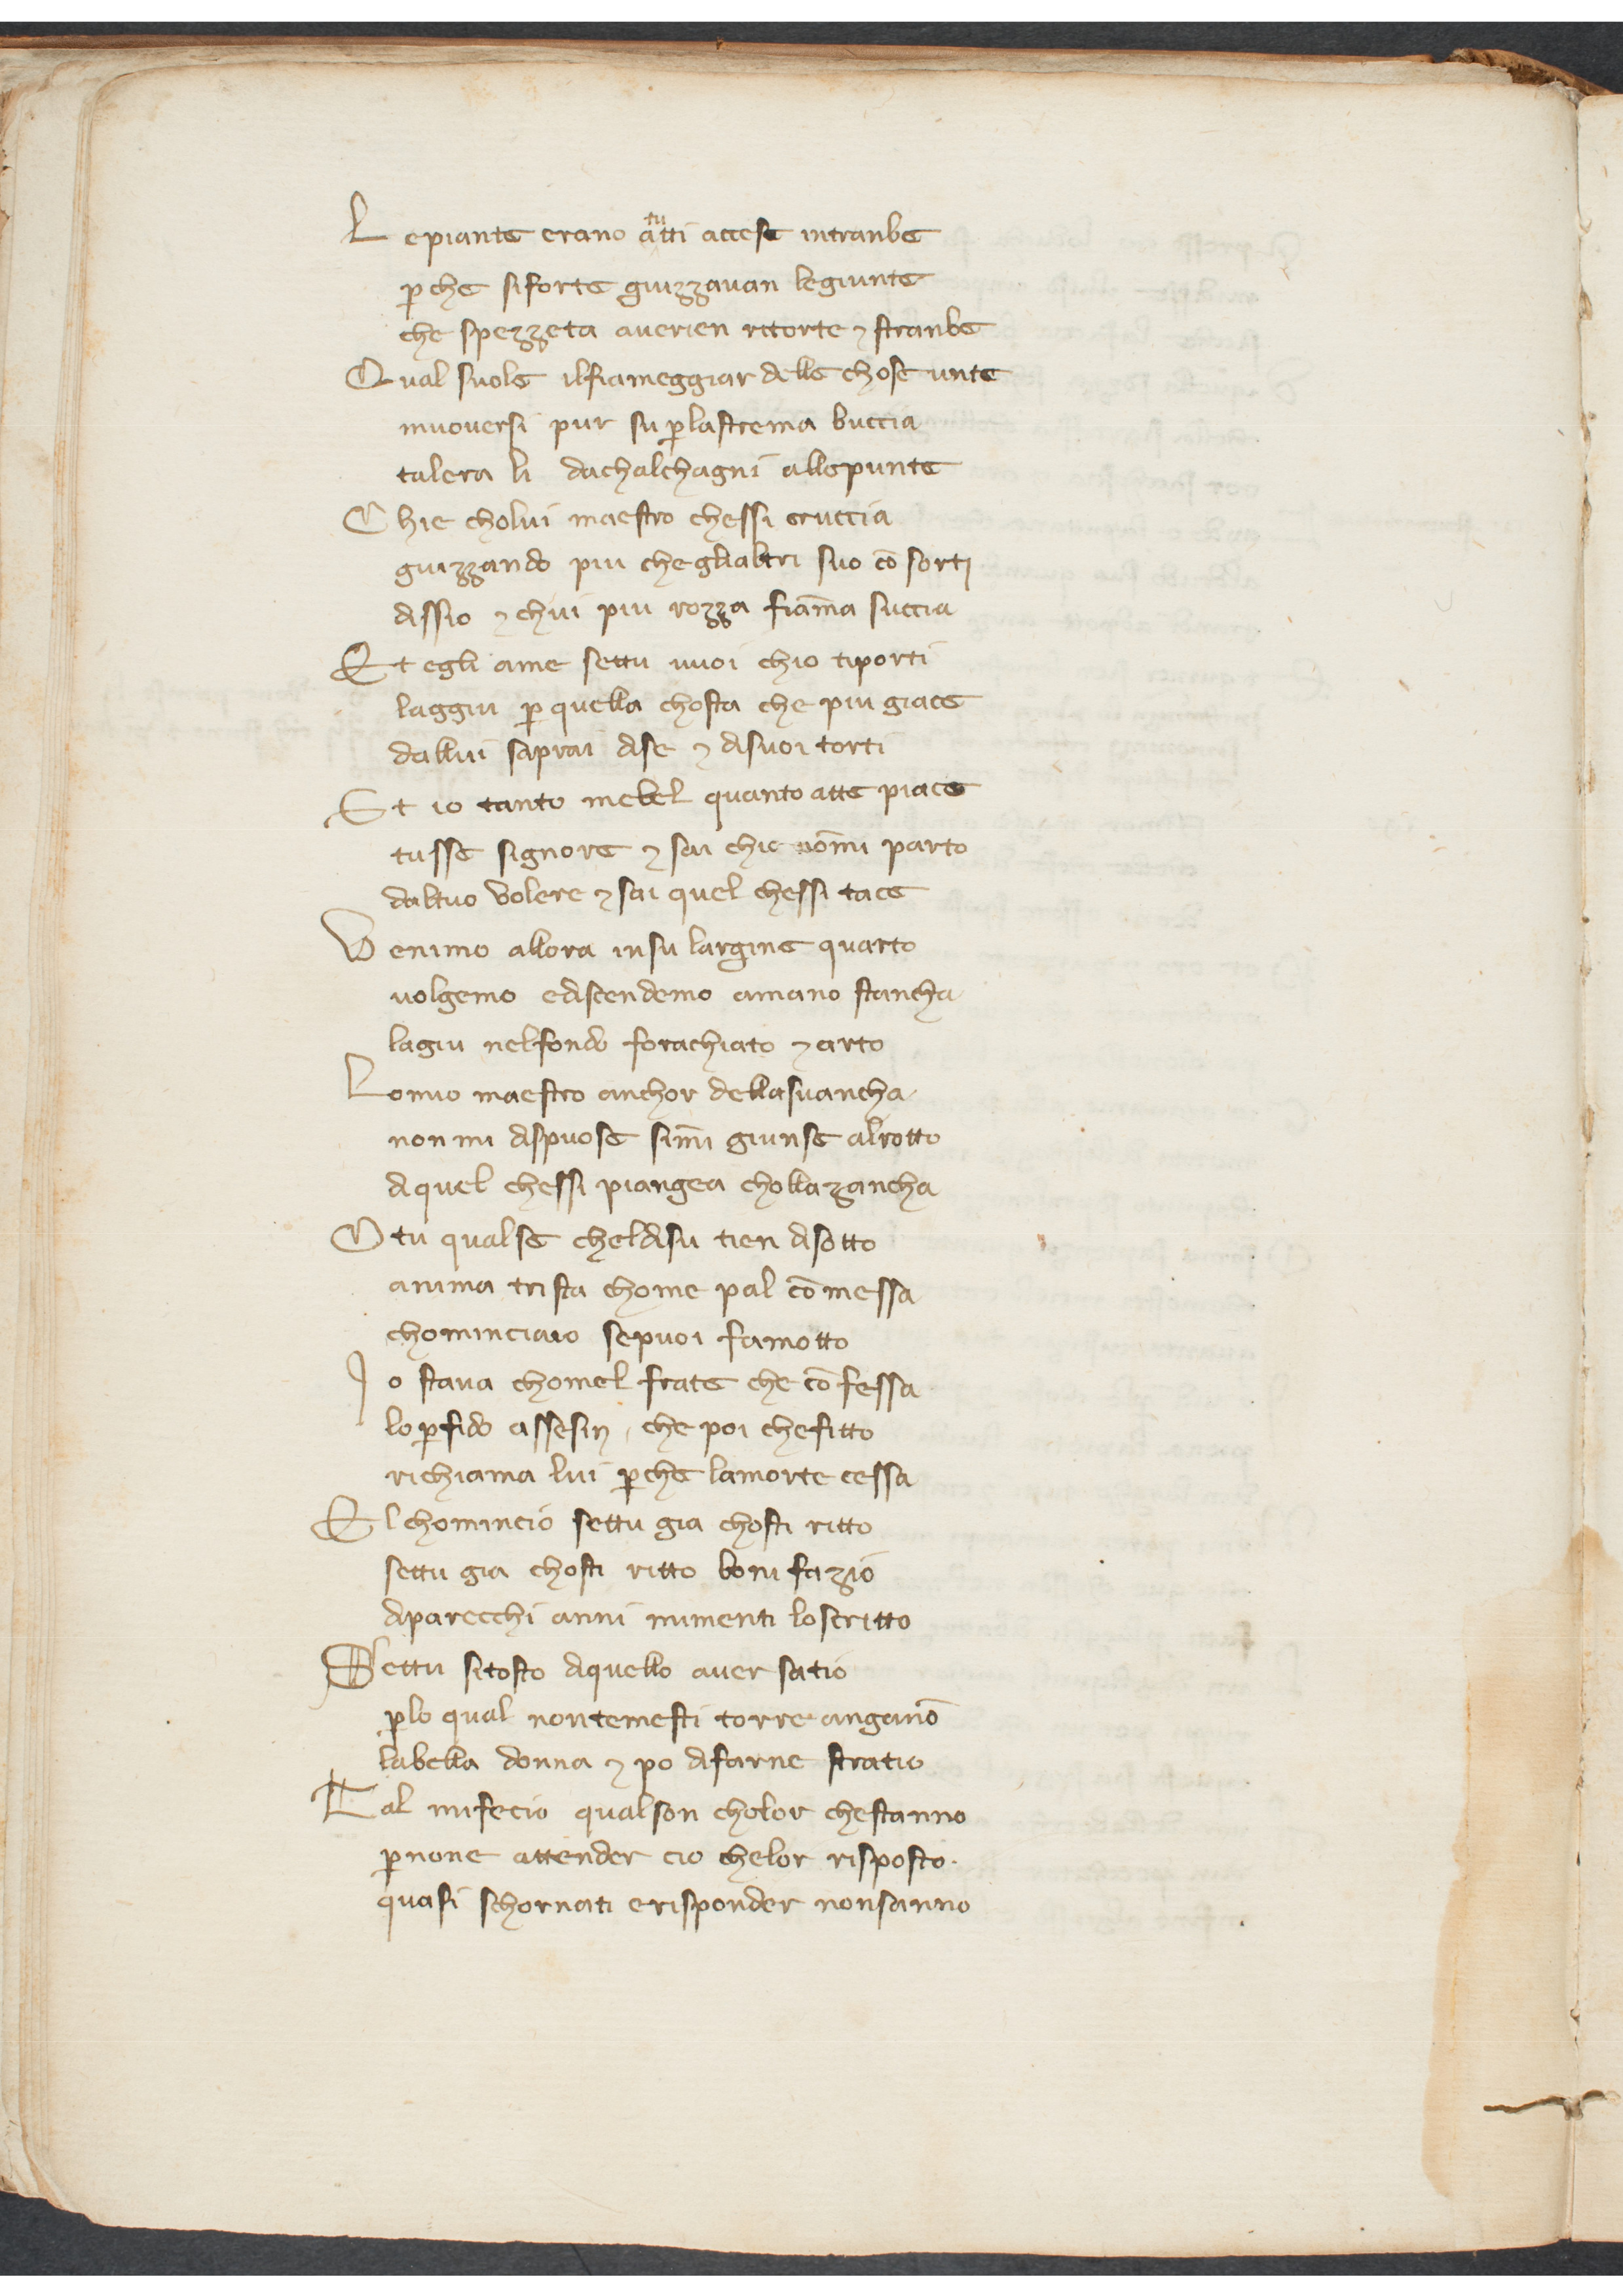 Le piante erano atutti accese intranbe
p̱che siforte guizzavan legiunte
che spezzeta averien ritorte ⁊ stranbe
Qual suole ilfiameggiar delle chose unte
muoversi pur su p̱lastrema buccia
talera li dachalchagni allepunte
Chie cholui maestro chessi cruccia
guizzando piu che glialtri suo cō sorti
dissio ⁊ chui piu rozza fiam̄a succia
Et egli ame settu vuoi chio tiporti
laggiu p̱ quella chosta che piu giace
dallui saprai dise ⁊ disuoi torti
Et io tanto mebel quanto atte piace
tusse signore ⁊ sai chio nōmi parto
daltuo volere ⁊ sai quel chessi tace
Venimo allora insu largine quarto
volgemo ediscendemo amano stancha
lagiu nelfondo forachiato ⁊ arto
Lomio maestro anchor dellasuancha
non mi dispuose sim̄i giunse alrotto
diquel chessi piangea chollazancha
Otu qualse cheldisu tien disotto
anima trista chome pal cōmessa
chominciaio sepuoi famotto
Io stava chomel frate che cōfessa
lo p̱fido assesin, che poi chefitto
richiama lui p̱che lamorte cessa
El chomincio settu gia chosti ritto
settu gia chosti ritto bonifazio
diparecchi anni mimenti loscritto
Settu sitosto diquello aver satio
p̱lo qual nontemesti torre anganō
labella donna ⁊ po difarne stratio
Tal mifecio qualson cholor chestanno
p̱none attender cio chelor risposto.
quasi schornati erisponder nonsanno